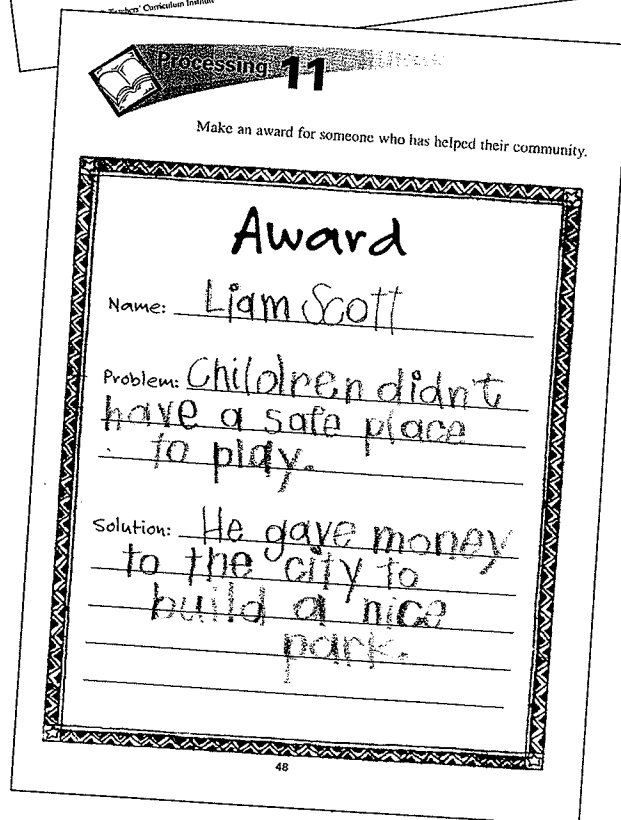 Teachers' Curriculum Institute
Processing 11
Make an award for someone who has helped their community.
Award
Name: Liam Scott
Problem: Children didnt
have a safe place
to play.
Solution: He gave money
to the city to
build a nice
park.
48